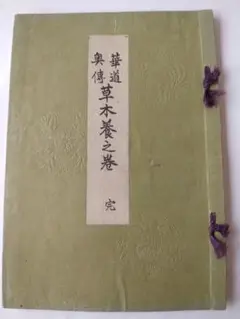 華道
奥傳
草木養之巻
完